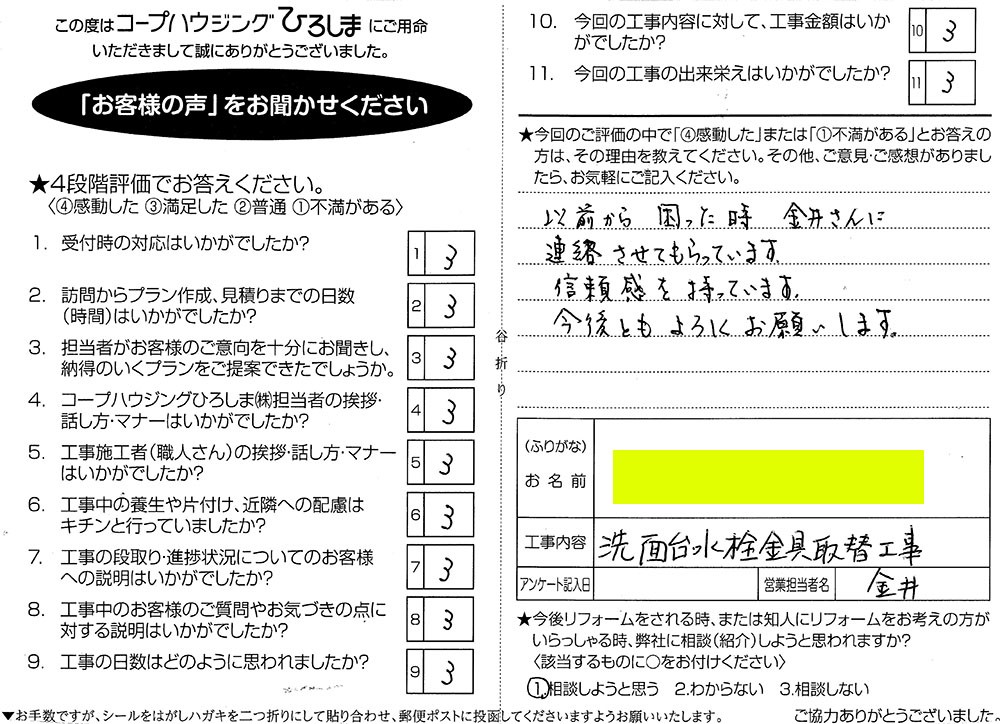 この度はコープハウジングひろしまにご用命
いただきまして誠にありがとうございました。
「お客様の声」をお聞かせください
★4段階評価でお答えください。
〈④感動した ③満足した ②普通 ①不満がある〉
1. 受付時の対応はいかがでしたか?
1 3
2. 訪問からプラン作成、見積りまでの日数
(時間)はいかがでしたか?
2 3
3. 担当者がお客様のご意向を十分にお聞きし、
納得のいくプランをご提案できたでしょうか。
3 3
4. コープハウジングひろしま㈱担当者の挨拶・
話し方・マナーはいかがでしたか?
4 3
5. 工事施工者(職人さん)の挨拶・話し方・マナー
はいかがでしたか?
5 3
6. 工事中の養生や片付け、近隣への配慮は
キチンと行っていましたか?
6 3
7. 工事の段取り・進捗状況についてのお客様
への説明はいかがでしたか?
7 3
8. 工事中のお客様のご質問やお気づきの点に
対する説明はいかがでしたか?
8 3
9. 工事の日数はどのように思われましたか?
9 3
▼お手数ですが、シールをはがしハガキを二つ折りにして貼り合わせ、郵便ポストに投函してくださいますようお願いいたします。
谷折り
10. 今回の工事内容に対して、工事金額はいか
がでしたか?
10 3
11. 今回の工事の出来栄えはいかがでしたか?
11 3
★今回のご評価の中で「④感動した」または「①不満がある」とお答えの
方は、その理由を教えてください。その他、ご意見・ご感想がありまし
たら、お気軽にご記入ください。
以前から 困った時 金井さんに
連絡させてもらっています。
信頼感を持っています。
今後ともよろしくお願いします。
(ふりがな)
お名前
工事内容 洗面台水栓金具取替工事
アンケート記入日 営業担当者名 金井
★今後リフォームをされる時、または知人にリフォームをお考えの方が
いらっしゃる時、弊社に相談(紹介)しようと思われますか?
〈該当するものに○をお付けください〉
1.相談しようと思う 2.わからない 3.相談しない
ご協力ありがとうございました。